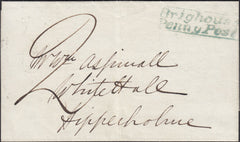 Brighouse
Penny Post
2
Mr Wm Aspinall
White Hall
Hipperholme